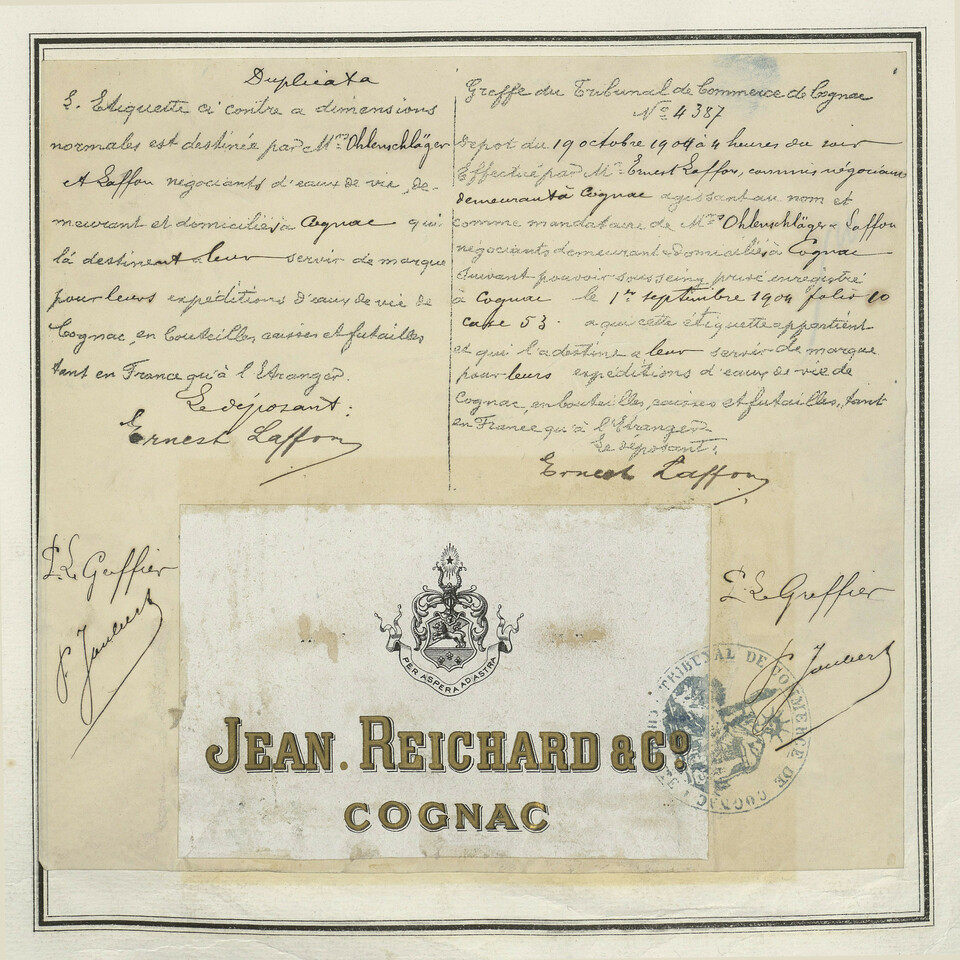 Duplicata
L'Etiquette ci contre a dimensions
normales est destinée par Mrs Ohlenschläger
et Laffon négociants d'eaux de vie, de-
meurant et domiciliés à Cognac qui
la destinent à leur servir de marque
pour leurs expéditions d'eaux de vie de
Cognac, en bouteilles caisses et futailles
tant en France qu'à l'Etranger.
Le déposant:
Ernest Laffon
P. Le Greffier
P. Joubert
Greffe du Tribunal de Commerce de Cognac
No 4387
Depot du 19 octobre 1904 à 4 heures du soir
Effectué par Mr Ernest Laffon, commis négociant
demeurant à Cognac agissant au nom et
comme mandataire de Mrs Ohlenschläger & Laffon
négociants demeurant & domiciliés à Cognac
suivant pouvoir sous seing privé enregistré
à Cognac le 1er septembre 1904 folio 10
case 53. a qui cette étiquette appartient
et qui l'a destine a leur servir de marque
pour leurs expéditions d'eaux de vie de
Cognac, en bouteilles, caisses et futailles, tant
en France qu'à l'Etranger.
Le déposant:
Ernest Laffon
P. Le Greffier
P. Joubert
PER ASPERA AD ASTRA
JEAN. REICHARD & Co
COGNAC
TRIBUNAL DE COMMERCE DE COGNAC